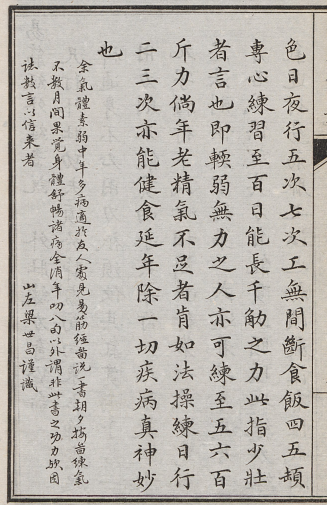 色日夜行五次七次工無間斷食飯四五頓
專心練習至百日能長千觔之力此指少壯
者言也即輭弱無力之人亦可練至五六百
斤力倘年老精氣不足者肯如法操練日行
二三次亦能健食延年除一切疾病真神妙
也
余氣體素弱中年多病適於友人處見易筋經啚説一書朝夕按啚練氣
不數月間果覺身體舒暢諸病全消年四八旬以外謂非此書之功力歟因
誌数言以信來者
山左梁世昌謹識